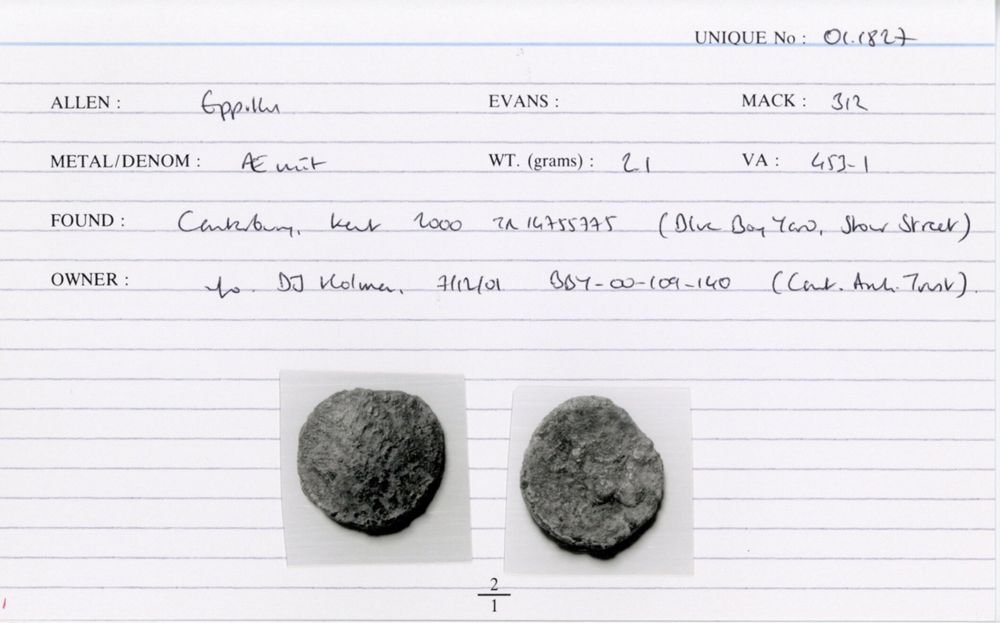 UNIQUE No : 01.1827
ALLEN : Eppillus EVANS : MACK : 312
METAL/DENOM : Æ unit WT. (grams) : 2.1 VA : 453-1
FOUND : Canterbury, Kent 2000 TR 14755775 (Blue Boy Yard, Stour Street)
OWNER : DJ Holman, 7/12/01 BBY-00-109-140 (Cant. Arch. Trust).
2
1